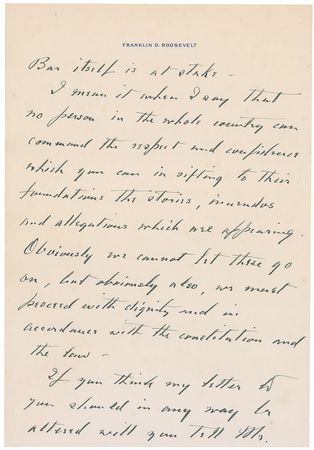 FRANKLIN D. ROOSEVELT
Bar itself is at stake -
I mean it when I say that
no person in the whole country can
command the respect and confidence
which you can in sifting to their
foundations the stories, inuendos
and allegations which are appearing.
Obviously we cannot let these go
on, but obviously also, we must
proceed with dignity and in
accordance with the constitution and
the law -
If you think my letter to
you should in any way be
altered will you tell Mr.